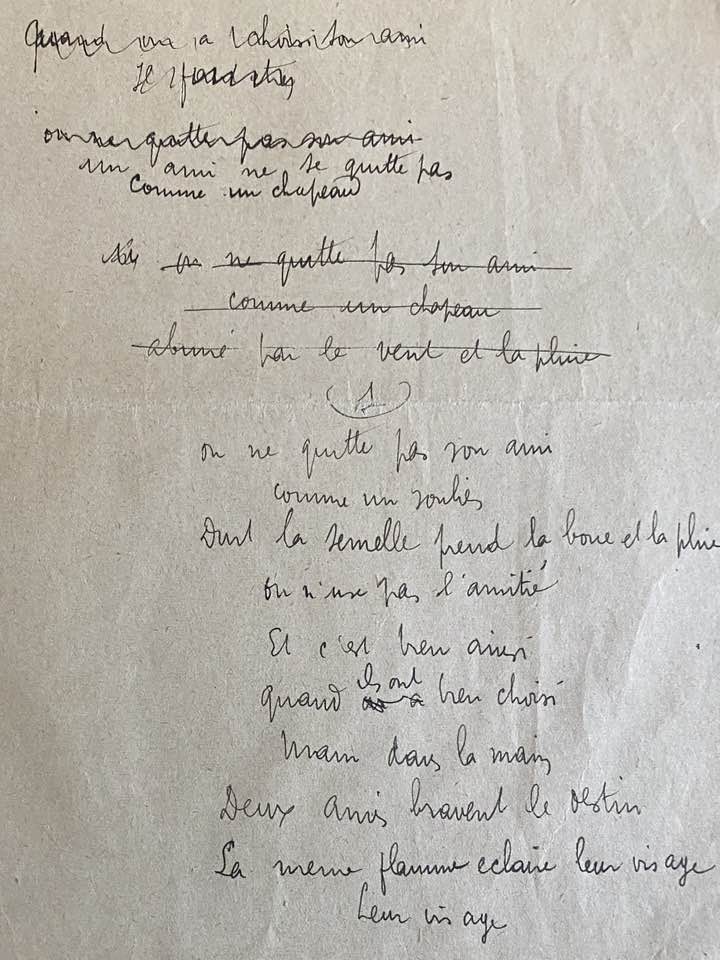 Quand on a choisi son ami
on ne quitte pas son ami
un ami ne se quitte pas
comme un chapeau
on ne quitte pas son ami
comme un chapeau
abimé par le vent et la pluie
1
on ne quitte pas son ami
comme un soulier
Dont la semelle prend la boue et la pluie
on n'use pas l'amitié
Et c'est bien ainsi
quand ils ont bien choisi
Main dans la main
Deux amis bravent le destin
La meme flamme eclaire leur visage
Leur visage